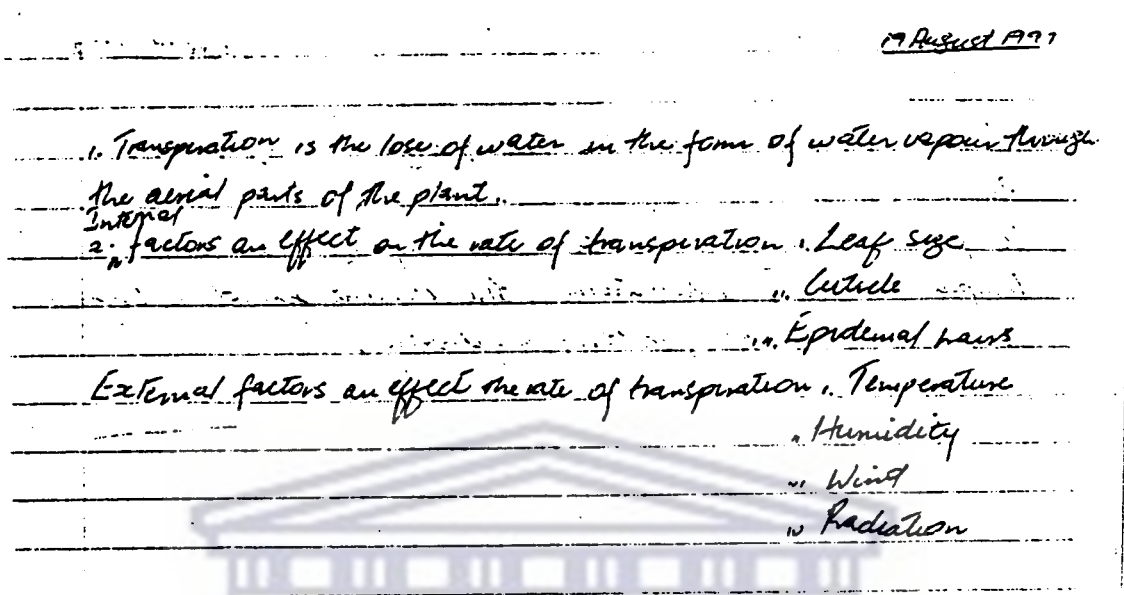 19 August 1997
1. Transpiration is the lose of water in the form of water vapour through
the aerial parts of the plant.
Internal
2. factors an effect on the rate of transpiration i. Leaf size
ii. Cuticle
iii. Epidemal hairs
External factors an effect the rate of transpiration i. Temperature
ii. Humidity
iii. Wind
iv Radiation